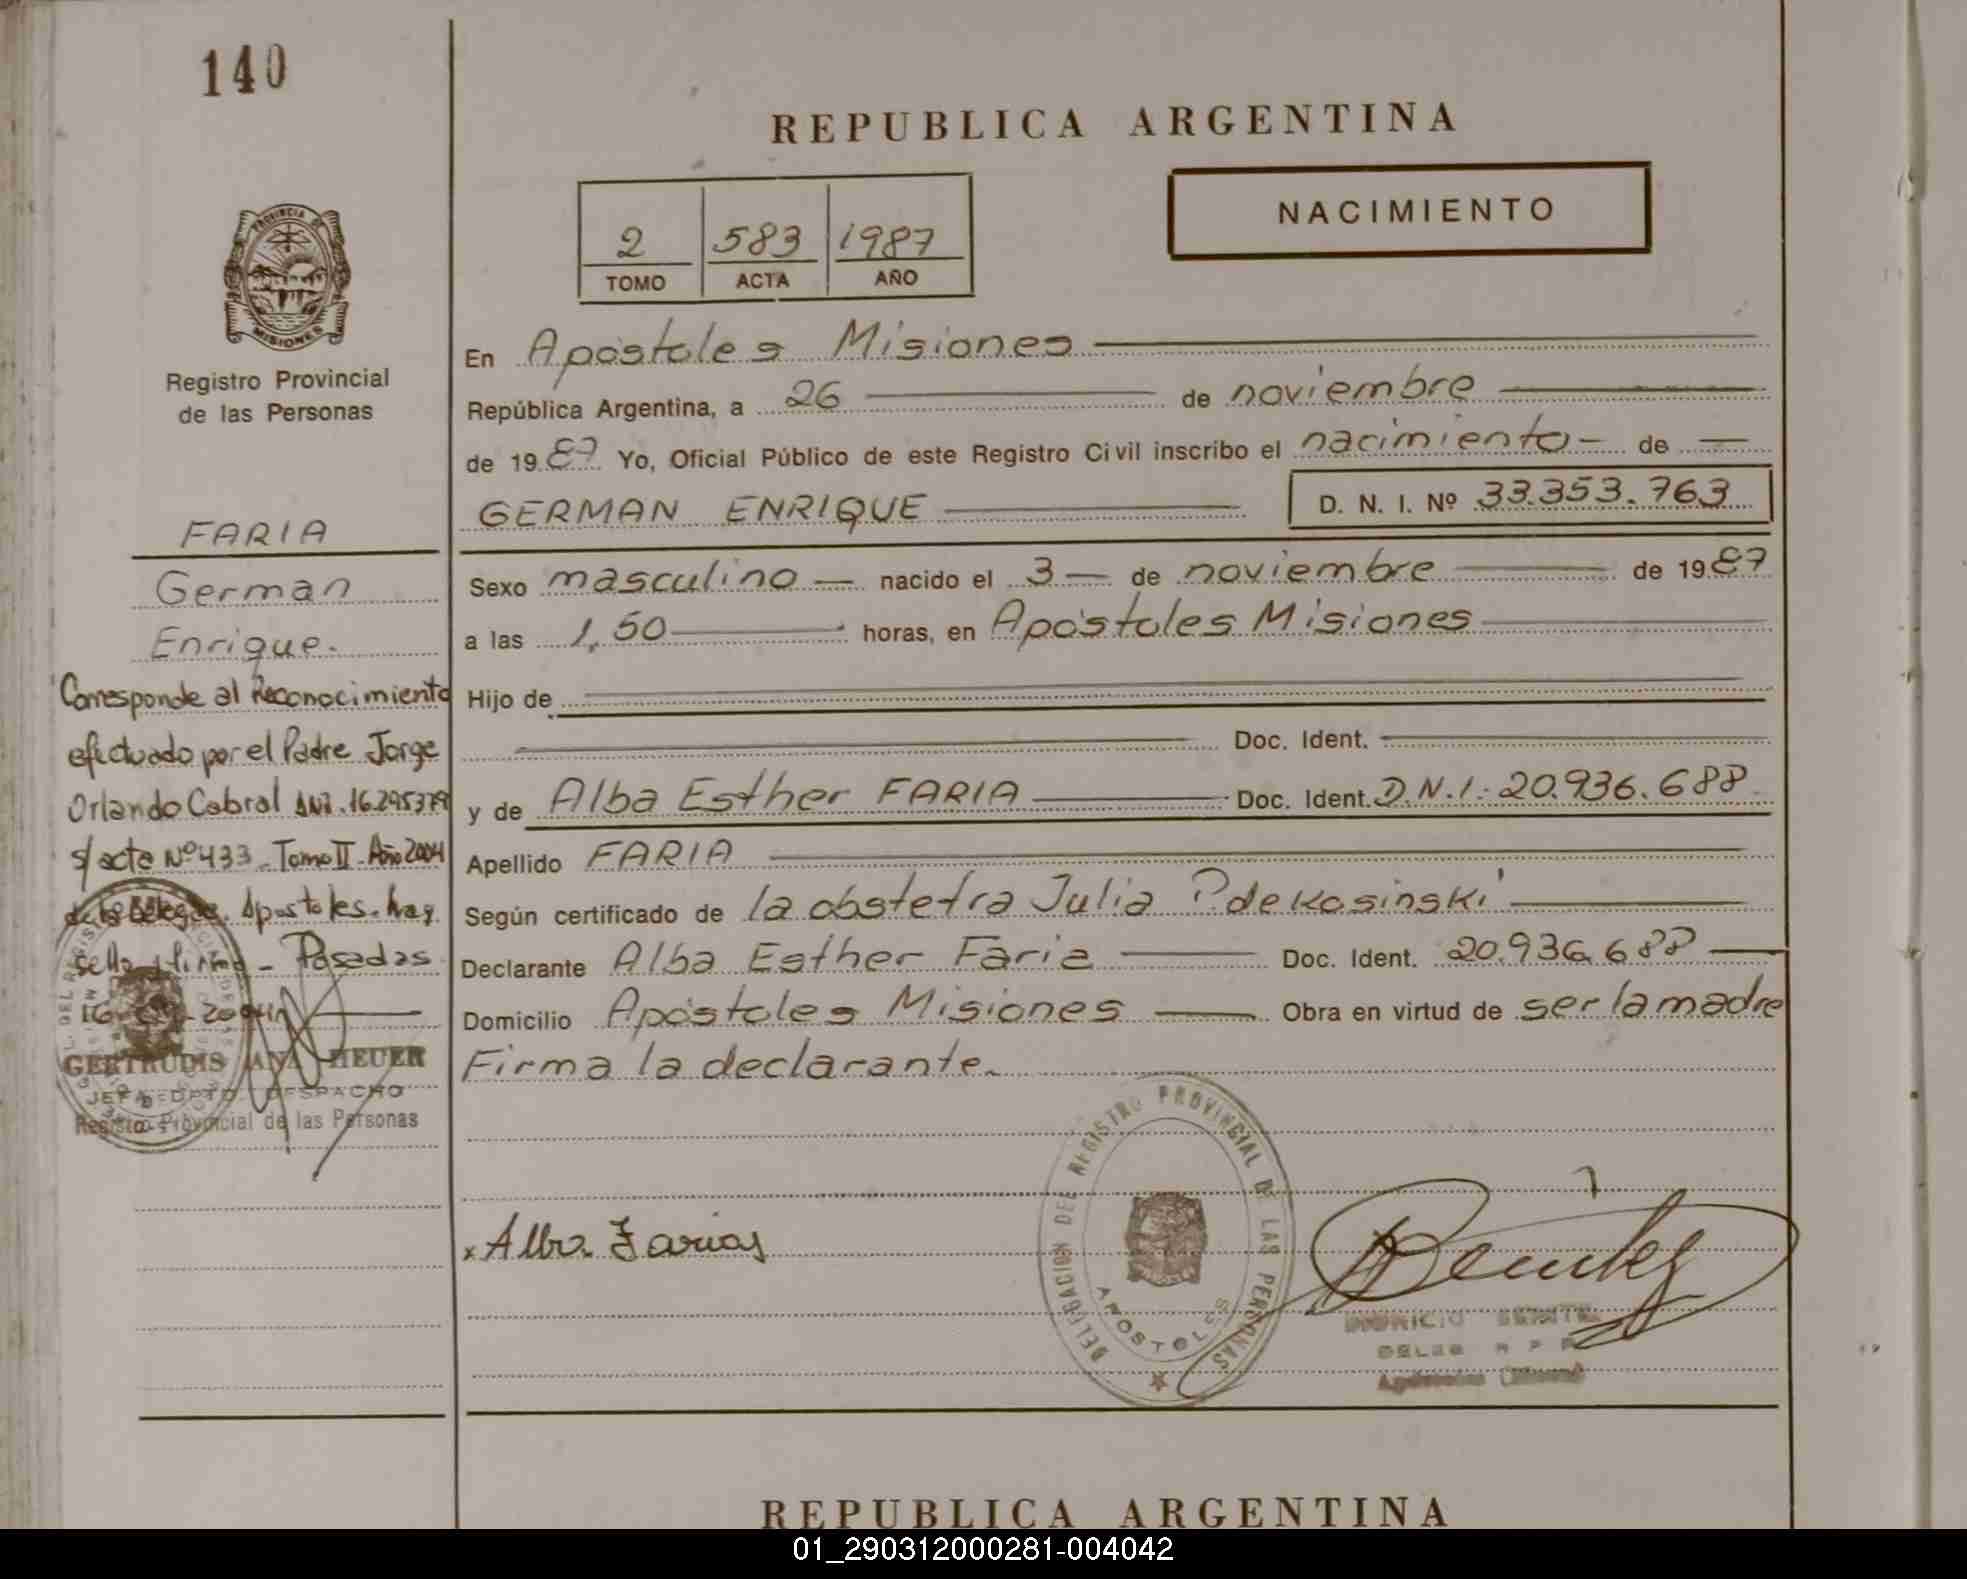 140
REPUBLICA ARGENTINA
NACIMIENTO
2 583 1987
TOMO ACTA AÑO
PROVINCIA DE
MISIONES
Registro Provincial
de las Personas
FARIA
German
Enrique.
Corresponde al Reconocimiento
efectuado por el Padre Jorge
Orlando Cabral DNI. 16.295379
s/ acta Nº 433 - Tomo II - Año 2004
Apostoles. hay
sello y firma - Posadas
16
GERTRUDIS ANA HEUER
JEFA DPTO. DESPACHO
Registro Provincial de las Personas
En Apóstoles Misiones
República Argentina, a 26 de noviembre
de 1987 Yo, Oficial Público de este Registro Civil inscribo el nacimiento de
GERMAN ENRIQUE D. N. I. Nº 33.353.763
Sexo masculino nacido el 3 de noviembre de 1987
a las 1,50 horas, en Apóstoles Misiones
Hijo de
Doc. Ident.
y de Alba Esther FARIA Doc. Ident. D.N.I. 20.936.688
Apellido FARIA
Según certificado de la obstetra Julia P. de Kosinski
Declarante Alba Esther Faria Doc. Ident. 20.936.688
Domicilio Apóstoles Misiones Obra en virtud de ser la madre
Firma la declarante.
x Alba Farias
DELEGACION DEL REGISTRO PROVINCIAL DE LAS PERSONAS
APOSTOLES
Benítez
REPUBLICA ARGENTINA
01_290312000281-004042